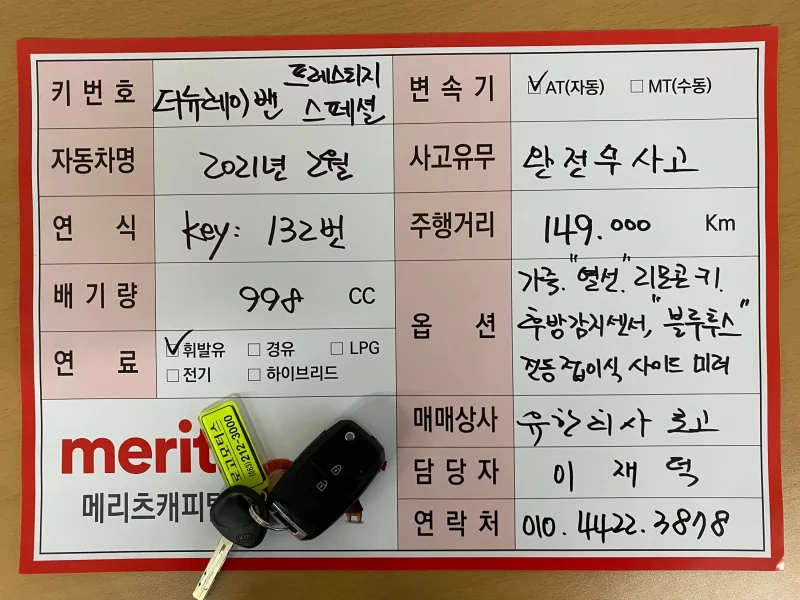 키 번 호
더뉴레이밴 프레스티지
스페셜
변 속 기
AT(자동) MT(수동)
자동차명
2021년 2월
사고유무
완전무사고
연 식
key: 132번
주행거리
149.000 Km
배 기 량
998 CC
옵 션
가죽. "열선". 리모콘키.
후방감지센서, "블루투스"
전동접이식 사이드 미러
연 료
휘발유 경유 LPG
전기 하이브리드
매매상사
유한회사 로고
담 당 자
이 재 덕
연 락 처
010.4422.3878
merit
메리츠캐피
로고모터스
(063)212-3000
KIA